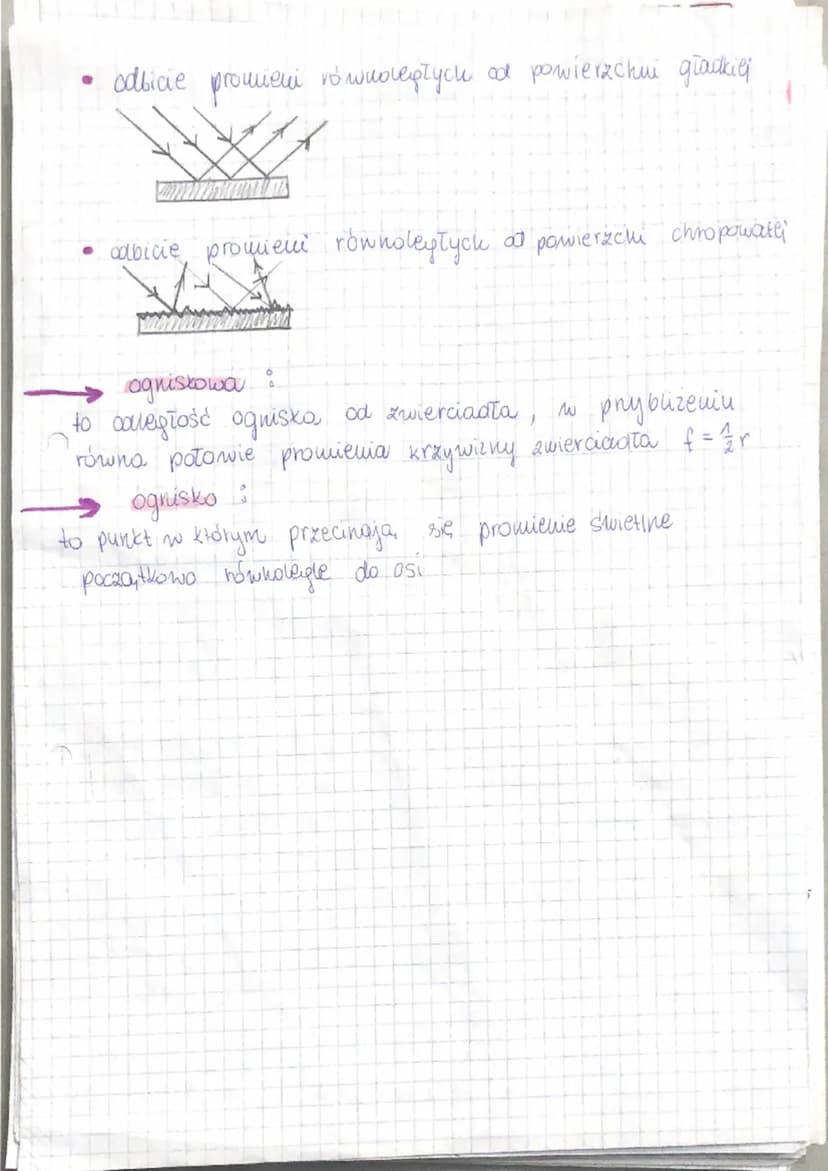 • odbicie promieni równoległych od powierzchni gładkiej
• odbicie promieni równoległych od powierzchni chropowatej
ogniskowa :
to odległość ogniska od zwierciadła, w przybliżeniu
równa połowie promienia krzywizny zwierciadła f = 1/2 r
ognisko :
to punkt w którym przecinają się promienie świetlne
początkowo równoległe do osi